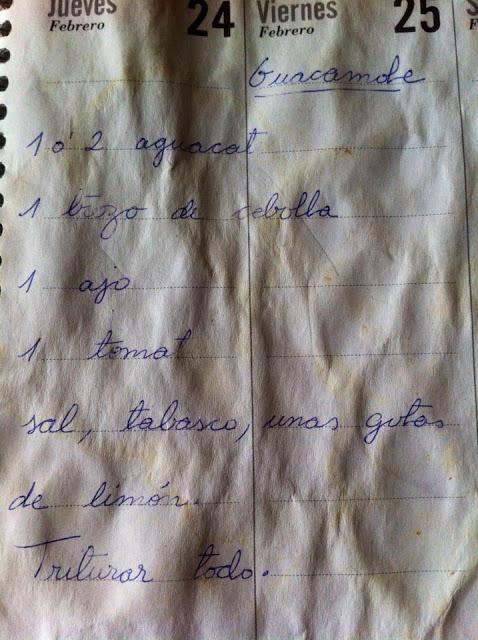 Jueves 24 Viernes 25
Febrero Febrero
Guacamole
1 ó 2 aguacat
1 trozo de cebolla
1 ajo
1 tomat
sal, tabasco, unas gotas
de limón.
Triturar todo.